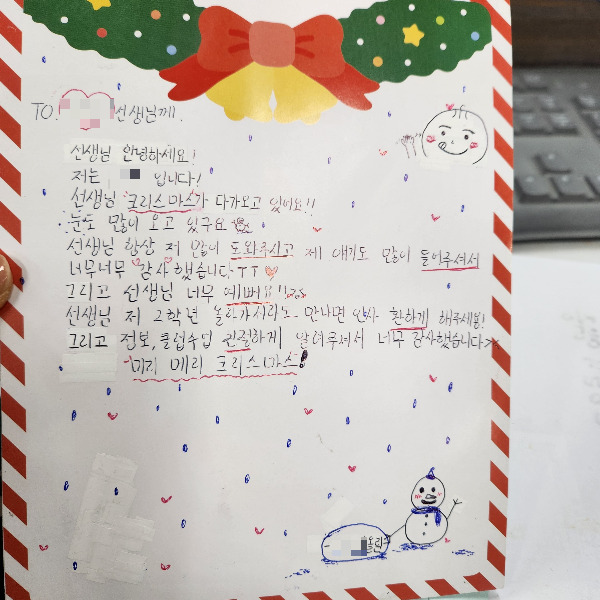 TO. 선생님께.
선생님 안녕하세요!
저는 입니다!
선생님 크리스마스가 다가오고 있어요!!
눈도 많이 오고 있구요
선생님 항상 저 많이 도와주시고 제 얘기도 많이 들어주셔서
너무너무 감사했습니다ㅜㅜ♡
그리고 선생님 너무 예뻐요!
선생님 저 2학년 올라가더라도 만나면 인사 환하게 해주세용!
그리고 정보, 클럽수업 친절하게 알려주셔서 너무 감사했습니다
미리 메리 크리스마스!
올림